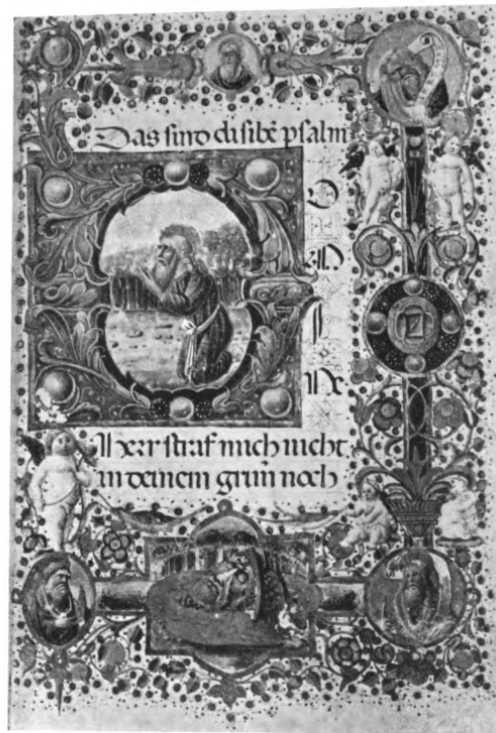 Das sind di sibē psalm
D
O
M
I
Ne
Herr straf mich nicht
in deinem grim̄ noch